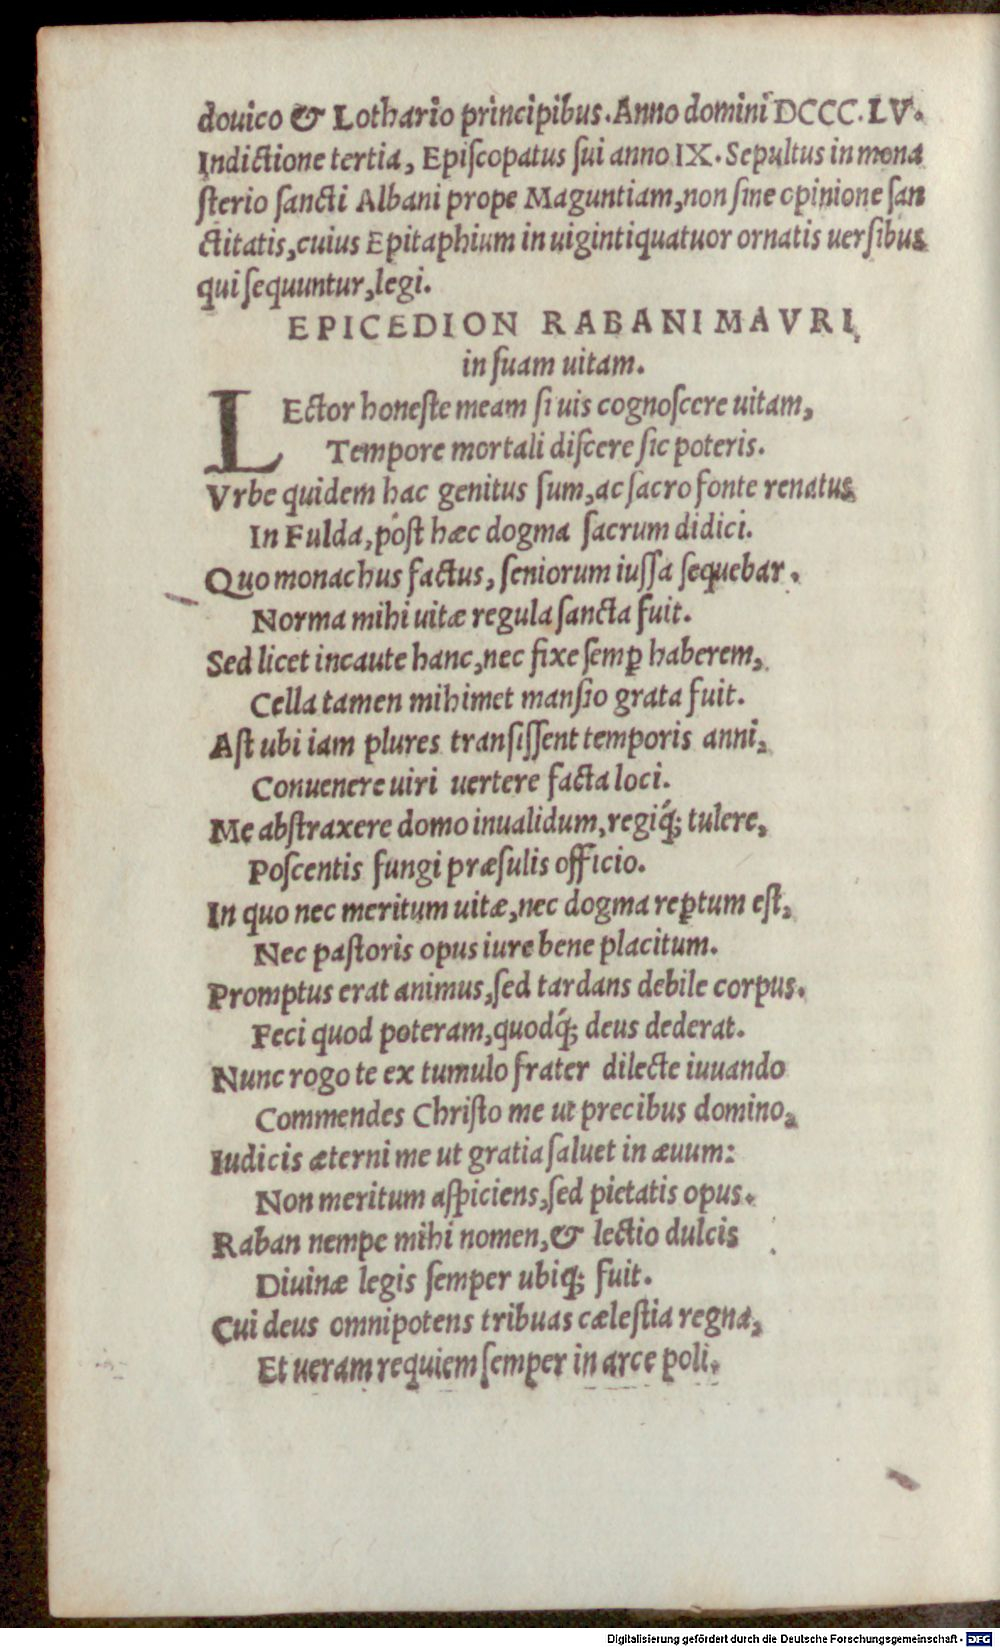 douico & Lothario principibus. Anno domini DCCC. LV.
Indictione tertia, Episcopatus sui anno IX. Sepultus in mona
sterio sancti Albani prope Maguntiam, non sine opinione san
ctitatis, cuius Epitaphium in uigintiquatuor ornatis uersibus
qui sequuntur, legi.
EPICEDION RABANI MAVRI,
in suam uitam.
LEctor honeste meam si uis cognoscere uitam,
Tempore mortali discere sic poteris.
Vrbe quidem hac genitus sum, ac sacro fonte renatus
In Fulda, póst hæc dogma sacrum didici.
Quo monachus factus, seniorum iussa sequebar.
Norma mihi uitæ regula sancta fuit.
Sed licet incaute hanc, nec fixe semꝑ haberem,
Cella tamen mihimet mansio grata fuit.
Ast ubi iam plures transissent temporis anni,
Conuenere uiri uertere facta loci.
Me abstraxere domo inualidum, regiq́; tulere,
Poscentis fungi præsulis officio.
In quo nec meritum uitæ, nec dogma reꝑtum est,
Nec pastoris opus iure bene placitum.
Promptus erat animus, sed tardans debile corpus.
Feci quod poteram, quodq́; deus dederat.
Nunc rogo te ex tumulo frater dilecte iuuando
Commendes Christo me ut precibus domino,
Iudicis æterni me ut gratia saluet in æuum:
Non meritum aspiciens, sed pietatis opus.
Raban nempe mihi nomen, & lectio dulcis
Diuinæ legis semper ubiq; fuit.
Cui deus omnipotens tribuas cælestia regna,
Et ueram requiem semper in arce poli.
Digitalisierung gefördert durch die Deutsche Forschungsgemeinschaft - DFG